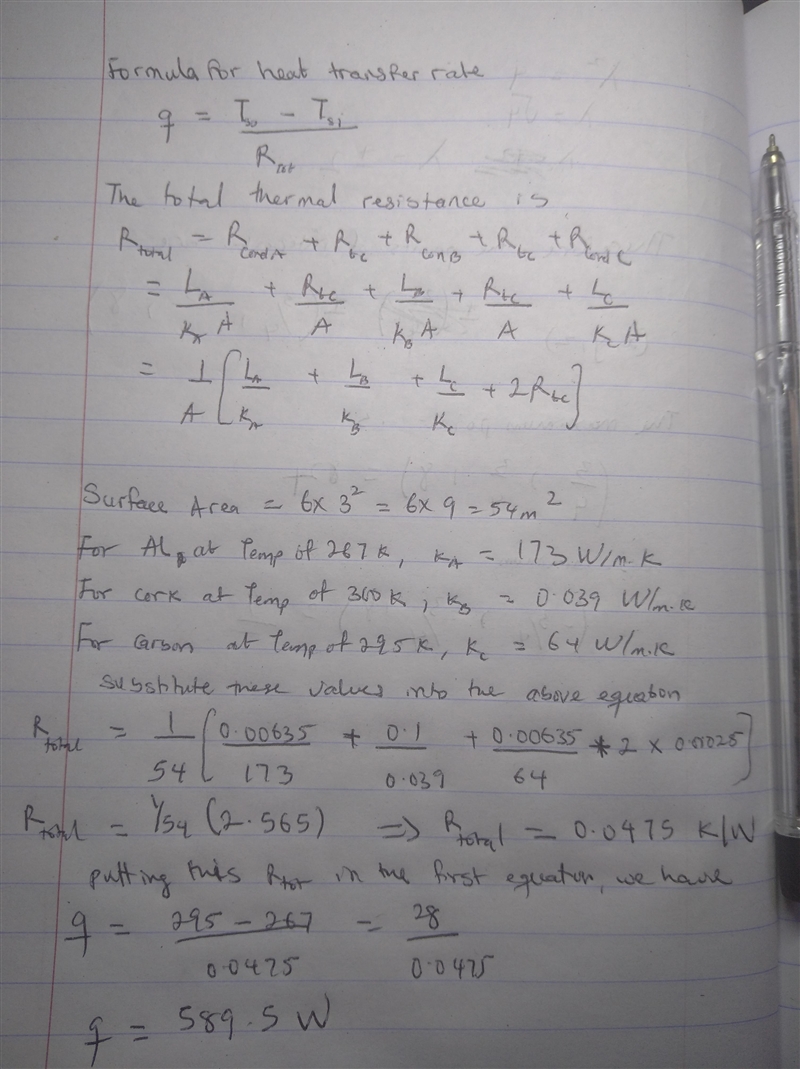 Formula for heat transfer rate
q = (T_so - T_si) / R_tot
The total thermal resistance is
R_total = R_condA + R_tc + R_conB + R_tc + R_condC
= L_A / (K_A A) + R_tc / A + L_B / (K_B A) + R_tc / A + L_C / (K_C A)
= 1/A [L_A / K_A + L_B / K_B + L_C / K_C + 2R_tc]
Surface Area = 6 x 3^2 = 6 x 9 = 54m^2
For AL, at Temp of 267k, K_A = 173 W/m.K
For cork at Temp of 300k, K_B = 0.039 W/m.k
For Carbon at Temp of 295k, K_C = 64 W/m.K
Substitute these values into the above equation
R_total = 1/54 [0.00635 / 173 + 0.1 / 0.039 + 0.00635 / 64 + 2 x 0.00025]
R_total = 1/54 (2.565) => R_total = 0.0475 K/W
putting this R_tot in the first equation, we have
q = (295 - 267) / 0.0475 = 28 / 0.0475
q = 589.5 W